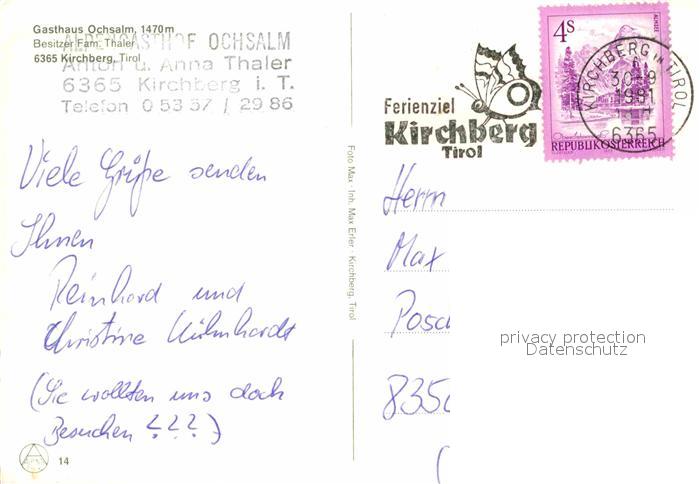 Gasthaus Ochsalm, 1470m
Besitzer Fam. Thaler
6365 Kirchberg, Tirol
ALPENGASTHOF OCHSALM
Anton u. Anna Thaler
6365 Kirchberg i. T.
Telefon 0 53 57 / 29 86
Viele Grüße senden
Ihnen
Reinhard und
Christine Kühnhardt
(Sie wollten uns doch
Besuchen ???)
14
Foto Max · Inh. Max Erler · Kirchberg, Tirol
Ferienziel
Kirchberg
Tirol
4S
ALMSEE
REPUBLIK ÖSTERREICH
KIRCHBERG IN TIROL
30.-9
1981
6365
Herrn
Max
8350
privacy protection
Datenschutz